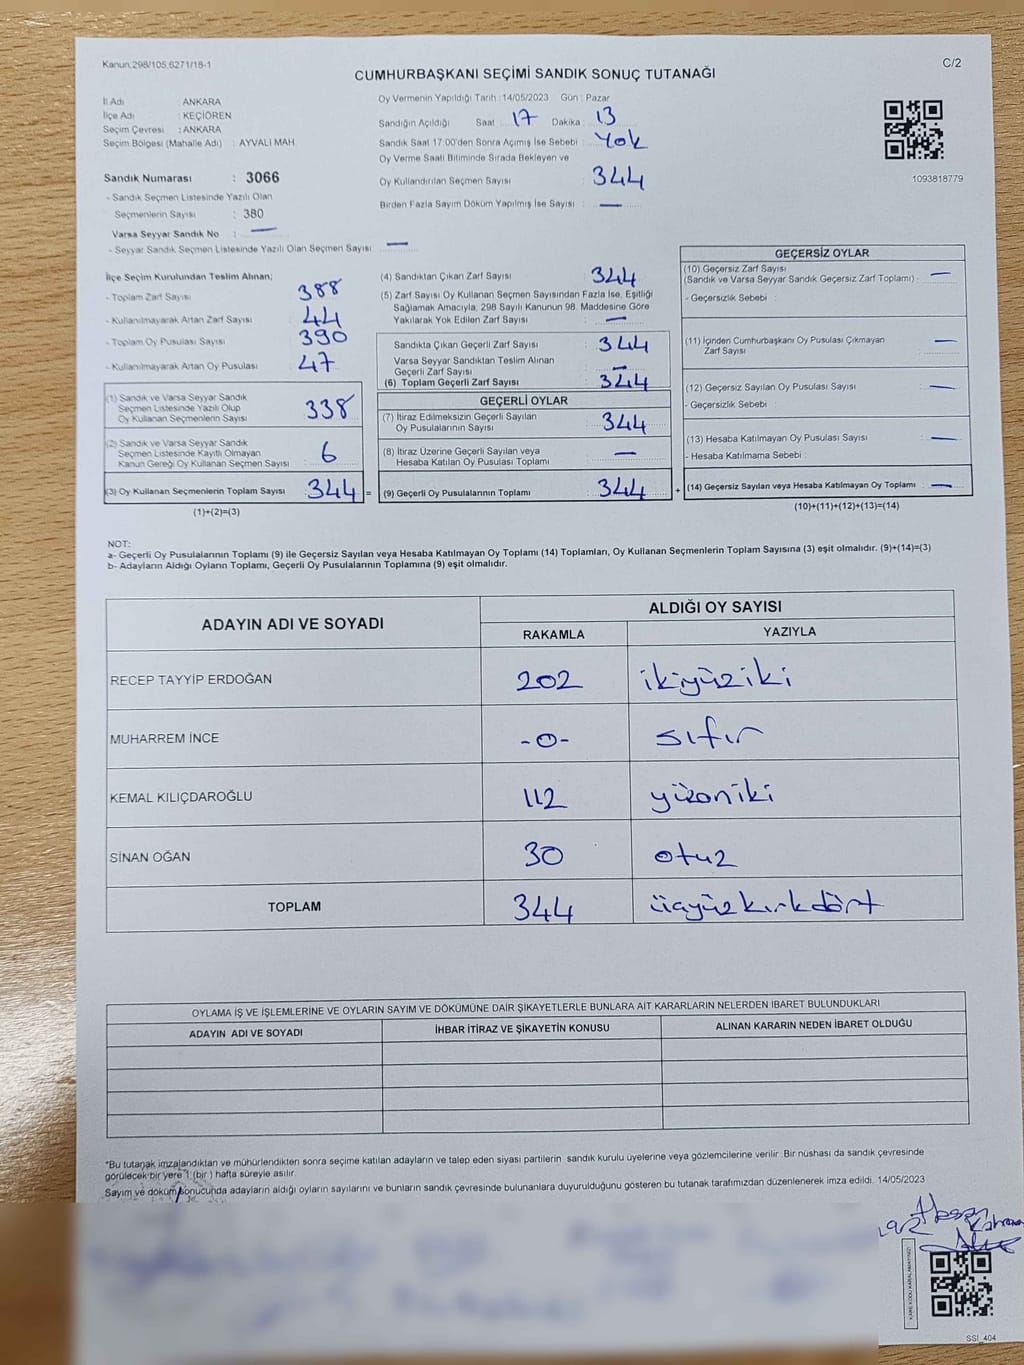 Kanun:298/105,6271/18-1
C/2
CUMHURBAŞKANI SEÇİMİ SANDIK SONUÇ TUTANAĞI
İl Adı : ANKARA
İlçe Adı : KEÇİÖREN
Seçim Çevresi : ANKARA
Seçim Bölgesi (Mahalle Adı) : AYVALI MAH.
Sandık Numarası : 3066
- Sandık Seçmen Listesinde Yazılı Olan
Seçmenlerin Sayısı : 380
Varsa Seyyar Sandık No : —
- Seyyar Sandık Seçmen Listesinde Yazılı Olan Seçmen Sayısı: —
Oy Vermenin Yapıldığı Tarih :14/05/2023 Gün : Pazar
Sandığın Açıldığı Saat : 17 Dakika : 13
Sandık Saat 17:00'den Sonra Açımış İse Sebebi : Yok
Oy Verme Saati Bitiminde Sırada Bekleyen ve
Oy Kullandırılan Seçmen Sayısı : 344
Birden Fazla Sayım Döküm Yapılmış İse Sayısı : —
1093818779
İlçe Seçim Kurulundan Teslim Alınan;
- Toplam Zarf Sayısı : 388
- Kullanılmayarak Artan Zarf Sayısı : 44
- Toplam Oy Pusulası Sayısı : 390
- Kullanılmayarak Artan Oy Pusulası : 47
(1) Sandık ve Varsa Seyyar Sandık
Seçmen Listesinde Yazılı Olup
Oy Kullanan Seçmenlerin Sayısı : 338
(2) Sandık ve Varsa Seyyar Sandık
Seçmen Listesinde Kayıtlı Olmayan
Kanun Gereği Oy Kullanan Seçmen Sayısı : 6
(3) Oy Kullanan Seçmenlerin Toplam Sayısı : 344 =
(1)+(2)=(3)
(4) Sandıktan Çıkan Zarf Sayısı : 344
(5) Zarf Sayısı Oy Kullanan Seçmen Sayısından Fazla İse, Eşitliği
Sağlamak Amacıyla, 298 Sayılı Kanunun 98. Maddesine Göre
Yakılarak Yok Edilen Zarf Sayısı : —
Sandıkta Çıkan Geçerli Zarf Sayısı : 344
Varsa Seyyar Sandıktan Teslim Alınan
Geçerli Zarf Sayısı : —
(6) Toplam Geçerli Zarf Sayısı : 344
GEÇERLİ OYLAR
(7) İtiraz Edilmeksizin Geçerli Sayılan
Oy Pusulalarının Sayısı : 344
(8) İtiraz Üzerine Geçerli Sayılan veya
Hesaba Katılan Oy Pusulası Toplamı : —
(9) Geçerli Oy Pusulalarının Toplamı : 344 +
GEÇERSİZ OYLAR
(10) Geçersiz Zarf Sayısı
(Sandık ve Varsa Seyyar Sandık Geçersiz Zarf Toplamı) : —
- Geçersizlik Sebebi :
(11) İçinden Cumhurbaşkanı Oy Pusulası Çıkmayan
Zarf Sayısı : —
(12) Geçersiz Sayılan Oy Pusulası Sayısı : —
- Geçersizlik Sebebi :
(13) Hesaba Katılmayan Oy Pusulası Sayısı : —
- Hesaba Katılmama Sebebi :
(14) Geçersiz Sayılan veya Hesaba Katılmayan Oy Toplamı : —
(10)+(11)+(12)+(13)=(14)
NOT:
a- Geçerli Oy Pusulalarının Toplamı (9) ile Geçersiz Sayılan veya Hesaba Katılmayan Oy Toplamı (14) Toplamları, Oy Kullanan Seçmenlerin Toplam Sayısına (3) eşit olmalıdır. (9)+(14)=(3)
b- Adayların Aldığı Oyların Toplamı, Geçerli Oy Pusulalarının Toplamına (9) eşit olmalıdır.
ADAYIN ADI VE SOYADI ALDIĞI OY SAYISI
RAKAMLA YAZIYLA
RECEP TAYYİP ERDOĞAN 202 ikiyüziki
MUHARREM İNCE -0- sıfır
KEMAL KILIÇDAROĞLU 112 yüzoniki
SİNAN OĞAN 30 otuz
TOPLAM 344 üçyüzkırkdört
OYLAMA İŞ VE İŞLEMLERİNE VE OYLARIN SAYIM VE DÖKÜMÜNE DAİR ŞİKAYETLERLE BUNLARA AİT KARARLARIN NELERDEN İBARET BULUNDUKLARI
ADAYIN ADI VE SOYADI İHBAR İTİRAZ VE ŞİKAYETİN KONUSU ALINAN KARARIN NEDEN İBARET OLDUĞU
*Bu tutanak imzalandıktan ve mühürlendikten sonra seçime katılan adayların ve talep eden siyasi partilerin sandık kurulu üyelerine veya gözlemcilerine verilir .Bir nüshası da sandık çevresinde
görülecek bir yere 1 (bir ) hafta süreyle asılır.
Sayım ve döküm sonucunda adayların aldığı oyların sayılarını ve bunların sandık çevresinde bulunanlara duyurulduğunu gösteren bu tutanak tarafımızdan düzenlenerek imza edildi. 14/05/2023
Hasan
SSI_404